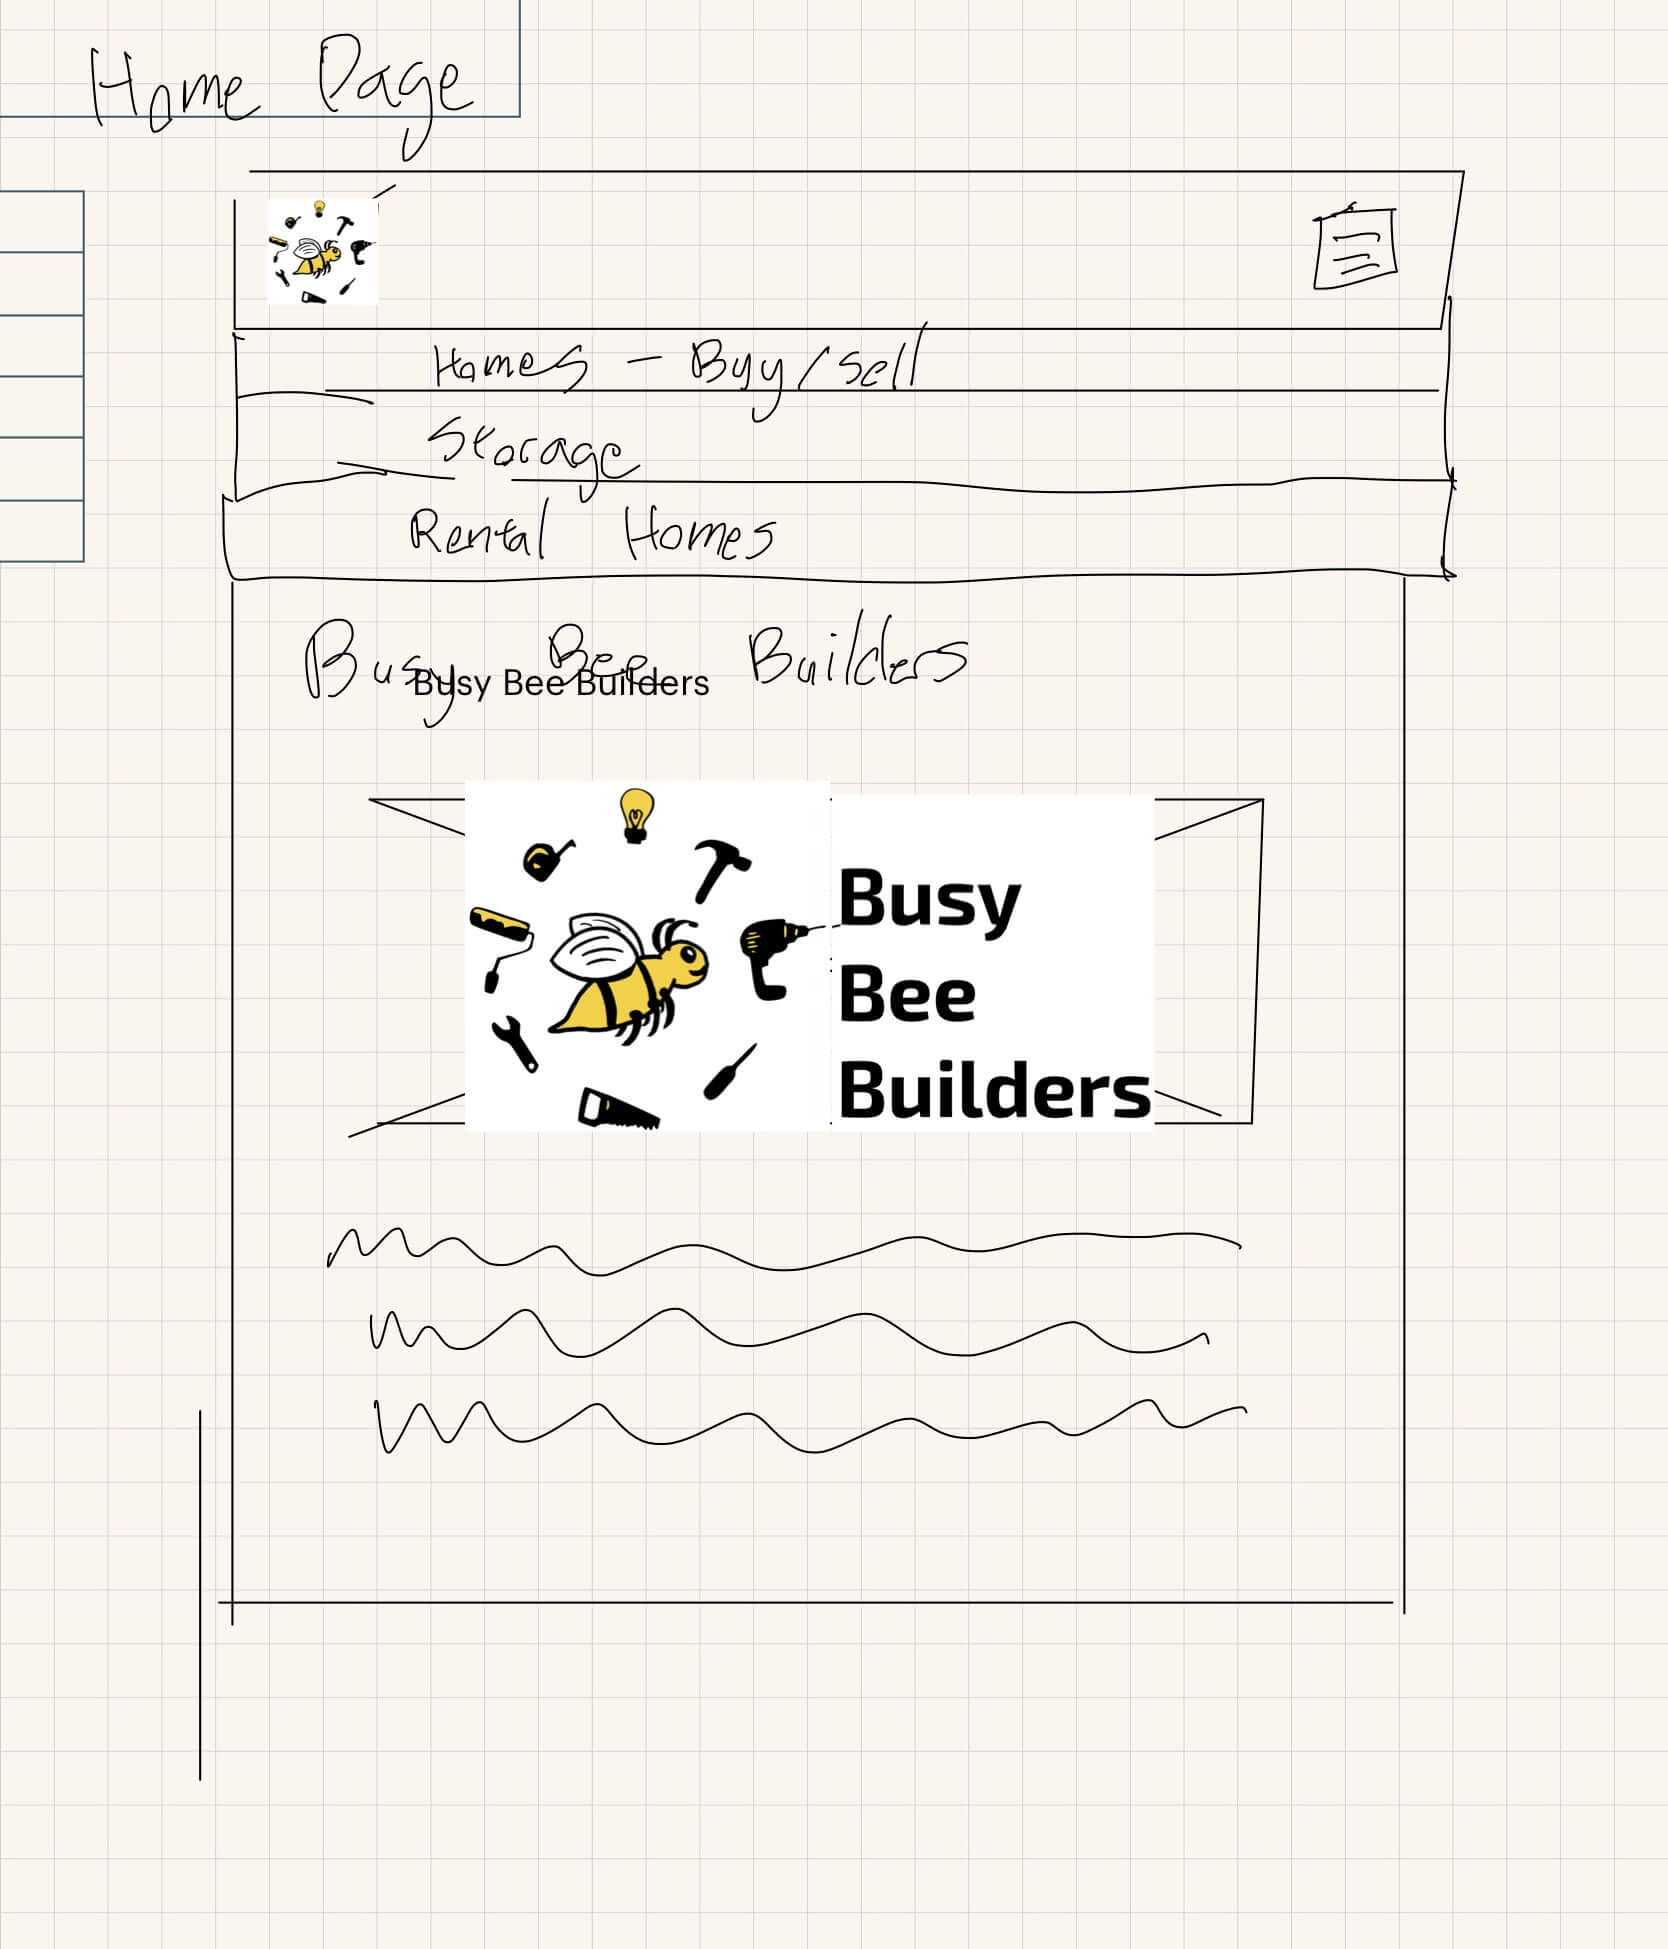 Home Page
Homes - Buy/sell
Storage
Rental Homes
Busy Bee Builders
Busy Bee Builders
Busy
Bee
Builders